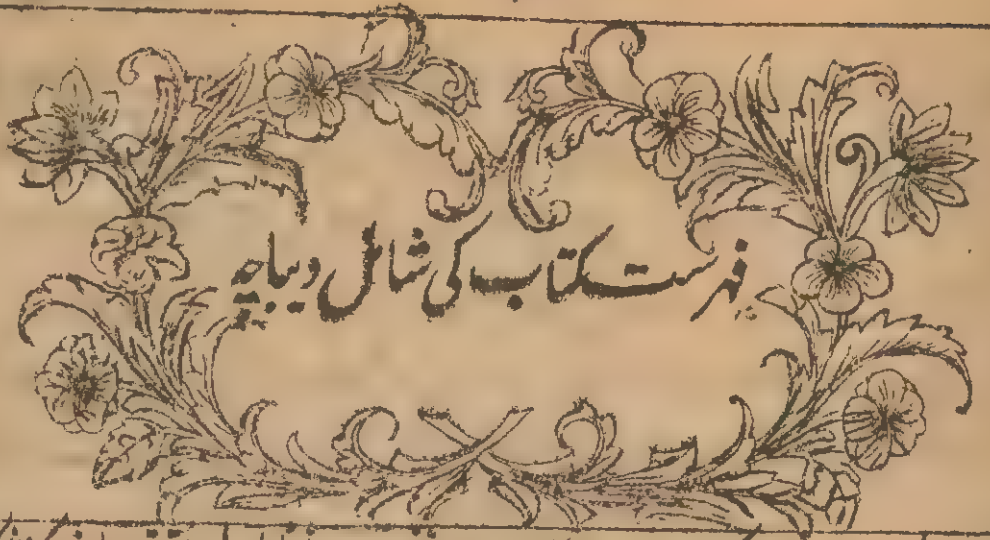 فہرست کتاب کی شامل دیباچہ